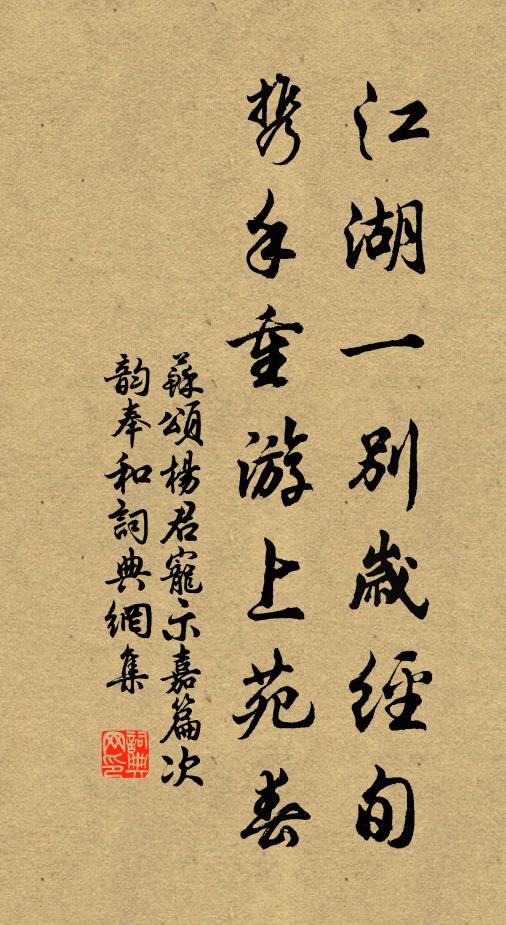 江湖一別歲經旬
携手重游上苑春
蘇頌楊君寵示嘉篇次
韵奉和詞典網集
詞典网印